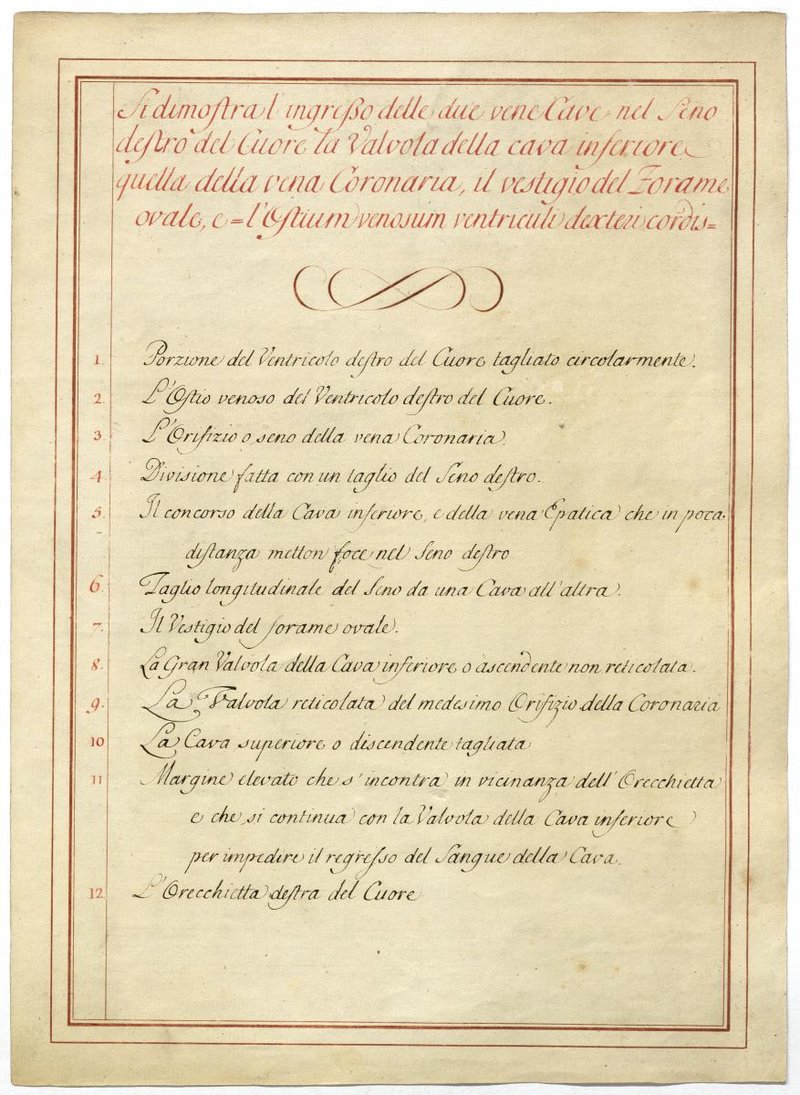 Si dimostra l'ingresso delle due vene Cave nel Seno
destro del Cuore la Valvola della cava inferiore
quella della vena Coronaria, il vestigio del Forame
ovale, e=l'Ostium venosum ventriculi dexteri cordis=
1. Porzione del Ventricolo destro del Cuore tagliato circolarmente.
2. L'Ostio venoso del Ventricolo destro del Cuore.
3 L'Orifizio o seno della vena Coronaria.
4 Divisione fatta con un taglio del Seno destro.
5. Il concorso della Cava inferiore, e della vena Epatica che in poca
distanza metton foce nel Seno destro
6. Taglio longitudinale del Seno da una Cava all'altra.
7. Il Vestigio del forame ovale.
8. La Gran Valvola della Cava inferiore o ascendente non reticolata.
9. La Valvola reticolata del medesimo Orifizio della Coronaria
10 La Cava superiore o discendente tagliata
11 Margine elevato che s'incontra in vicinanza dell'Orecchietta
e che si continua con la Valvola della Cava inferiore
per impedire il regresso del Sangue della Cava.
12 L'Orecchietta destra del Cuore